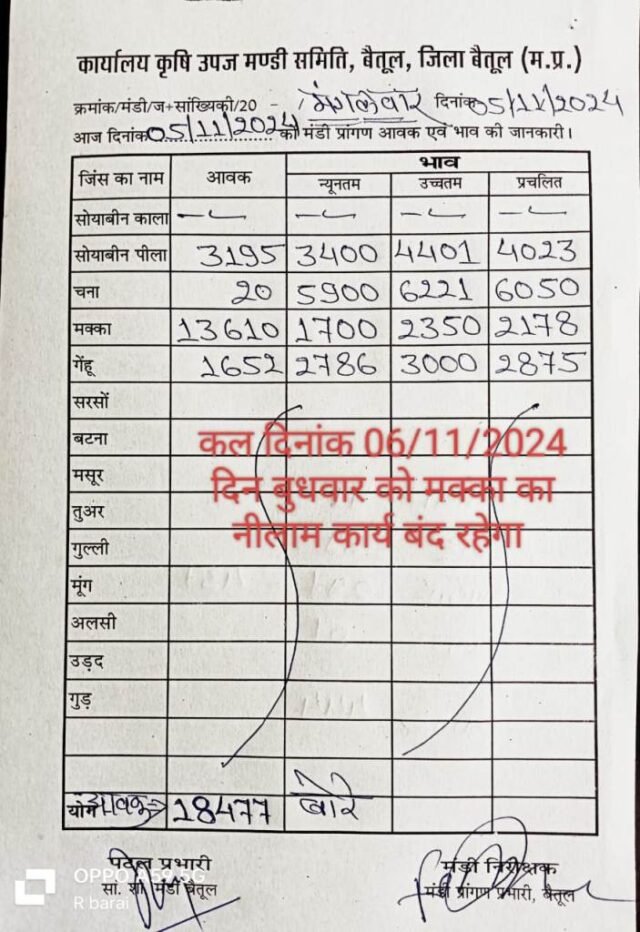 कार्यालय कृषि उपज मण्डी समिति, बैतूल, जिला बैतूल (म.प्र.)
क्रमांक/मंडी/ज+सांख्यिकी/20 - मंगलवार दिनांक 05/11/2024
आज दिनांक 05/11/2024 को मंडी प्रांगण आवक एवं भाव की जानकारी।
जिंस का नाम आवक भाव
न्यूनतम उच्चतम प्रचलित
सोयाबीन काला
सोयाबीन पीला 3195 3400 4401 4023
चना 20 5900 6221 6050
मक्का 13610 1700 2350 2178
गेंहू 1652 2786 3000 2875
सरसों
बटना
मसूर
तुअर
गुल्ली
मूंग
अलसी
उड़द
गुड़
कल दिनांक 06/11/2024
दिन बुधवार को मक्का का
नीलाम कार्य बंद रहेगा
योग आवक 18477 बोरे
पटेल प्रभारी
सां. शा. मंडी बैतूल
मंडी निरीक्षक
मंडी प्रांगण प्रभारी, बैतूल
OPPO A59 5G
R barai